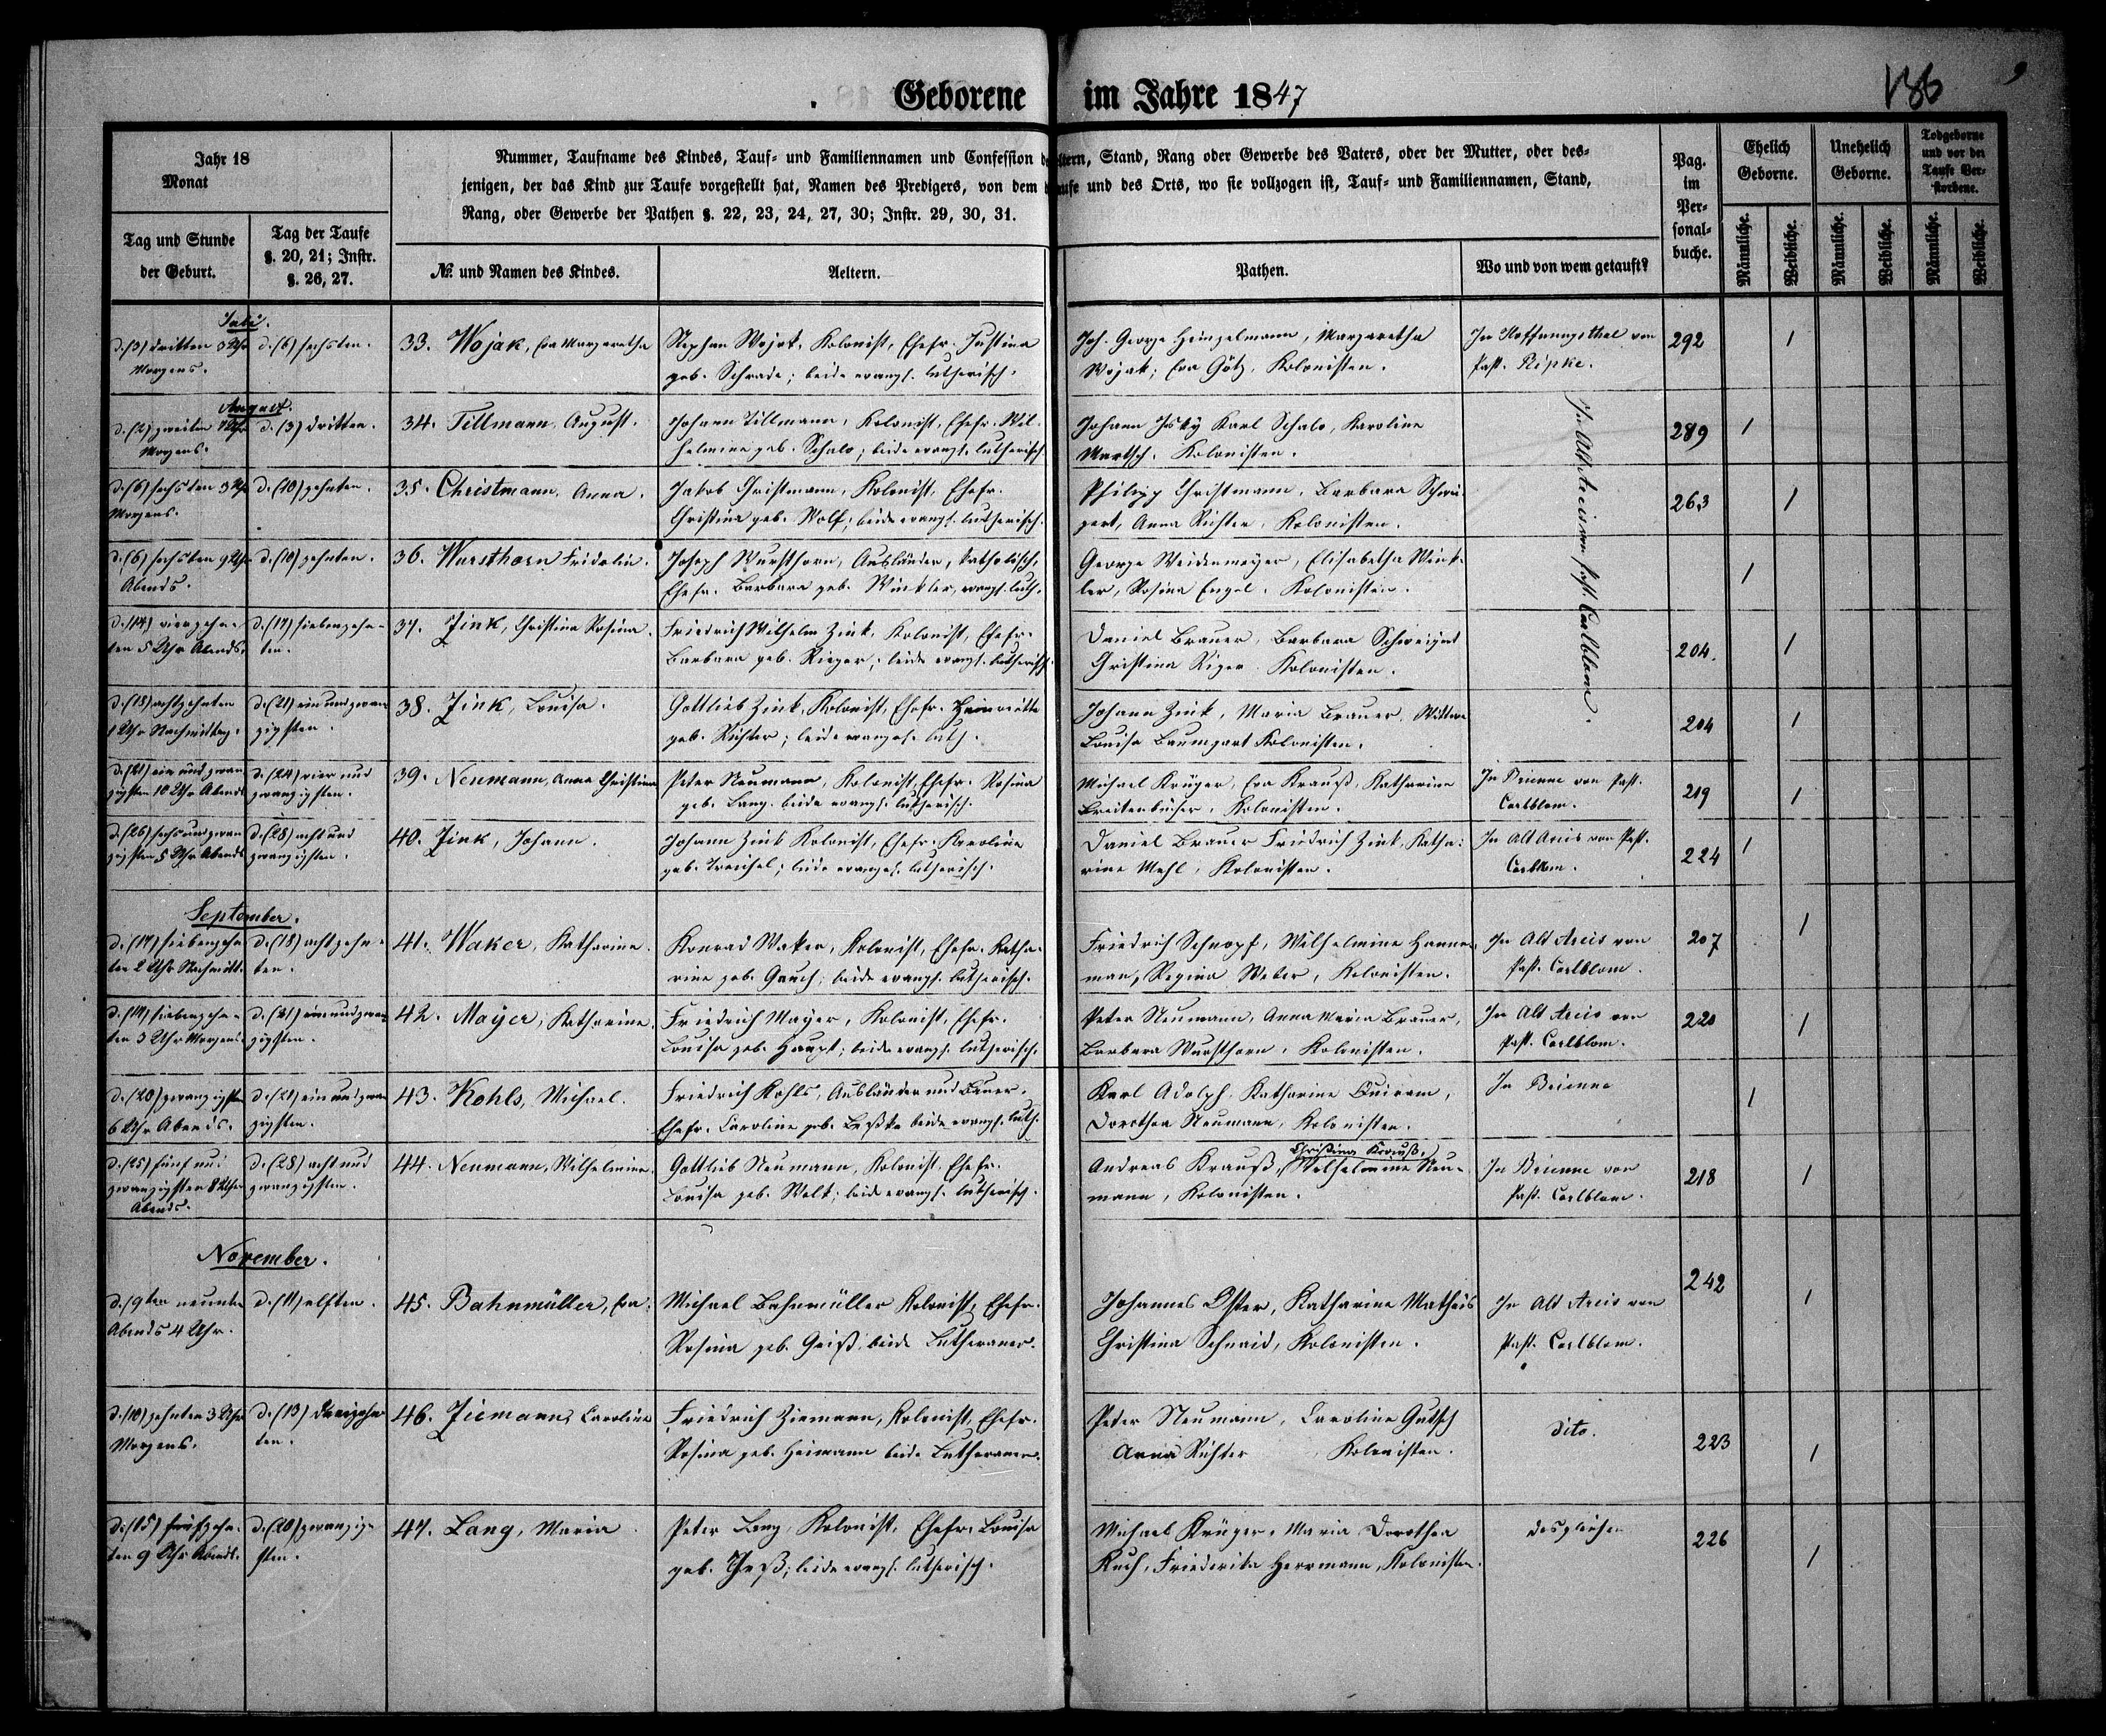 Geborene im Jahre 1847
186
9
Jahr 18
Monat
Tag und Stunde
der Geburt.
Tag der Taufe
§. 20, 21; Instr.
§. 26, 27.
Nummer, Taufname des Kindes, Tauf- und Familiennamen und Confession der Aeltern, Stand, Rang oder Gewerbe des Vaters, oder der Mutter, oder des-
jenigen, der das Kind zur Taufe vorgestellt hat, Namen des Predigers, von dem die Taufe und des Orts, wo sie vollzogen ist, Tauf- und Familiennamen, Stand,
Rang, oder Gewerbe der Pathen §. 22, 23, 24, 27, 30; Instr. 29, 30, 31.
№. und Namen des Kindes.
Aeltern.
Pathen.
Wo und von wem getauft?
Pag.
im
Per-
sonal-
buche.
Ehelich
Geborne.
Unehelich
Geborne.
Todgeborne
und vor der
Taufe Ver-
storbene.
Männliche.
Weibliche.
Männliche.
Weibliche.
Männliche.
Weibliche.
Juli.
d. (3) dritten 3 Uhr
Morgens.
d. (6) sechsten.
33. Wojak, Eva Margaretha
Stephan Wojak, Kolonist, Ehefr. Justina
geb. Schrade; beide evangl. lutherisch.
Joh. George Heinzelmann, Margaretha
Wojak; Eva Götz, Kolonisten.
In Hoffnungsthal von
Past. Pipke.
292
1
August.
d. (2) zweiten Uhr
Morgens.
d. (3) dritten.
34. Tillmann, August.
Johann Tillmann, Kolonist, Ehefr. Wil-
helmine geb. Schalo; beide evangl. lutherisch
Johann Karl Schalo, Karoline
Martsch, Kolonisten.
In Alt Arcis von Past. Carlblom.
289
1
d. (6) sechsten 3 Uhr
Morgens.
d. (10) zehnten.
35. Christmann, Anna.
Jakob Christmann, Kolonist, Ehefr.
Christina geb. Wolf; beide evangl. lutherisch.
Philipp Christmann, Barbara Schwei-
gert, Anna Richter, Kolonisten.
263
1
d. (6) sechsten 9 Uhr
Abends.
d. (10) zehnten.
36. Wursthorn Fridolin.
Joseph Wursthorn, Ausländer, katholisch,
Ehefr. Barbara geb. Winkler, evangl. luth.
George Weidenmeyer, Elisabetha Wink-
ler, Rosina Engel, Kolonisten.
1
d. (14) vierzehn-
ten 5 Uhr Abends.
d. (17) siebenzehn-
ten.
37. Zink, Christina Rosina.
Friedrich Wilhelm Zink, Kolonist, Ehefr.
Barbara geb. Rieger; beide evangl. lutherisch.
Daniel Brauer, Barbara Schweigert
Christina Riger, Kolonisten.
204.
1
d. (18) achtzehnten
1 Uhr Nachmittag.
d. (21) ein und zwan
zigsten.
38. Zink, Louisa.
Gottlieb Zink, Kolonist, Ehefr. Henriette
geb. Richter; beide evangel. luth.
Johann Zink, Maria Brauer, Wittwe
Louisa Baumgart Kolonisten.
204
1
d. (21) ein und zwan
zigsten 10 Uhr Abends
d. (24) vier und
zwanzigsten.
39. Neumann, Anna Christina
Peter Neumann, Kolonist, Ehefr. Rosina
geb. Lang beide evangl. lutherisch.
Michael Krüger, Eva Krauß, Katharina
Breitenbücher, Kolonisten.
In Brienne von Past.
Carlblom.
219
1
d. (26) sechs und zwan
zigsten 5 Uhr Abends
d. (28) acht und
zwanzigsten.
40. Zink, Johann.
Johann Zink Kolonist, Ehefr. Karoline
geb. Treichel; beide evangel. lutherisch.
Daniel Brauer Friedrich Zink, Katha-
rine Mehl, Kolonisten.
In Alt Arcis von Past.
Carlblom.
224
1
September.
d. (17) siebenzehn
ten 2 Uhr Nachmitt.
d. (18) achtzehn-
ten.
41. Waker, Katharine.
Konrad Waker, Kolonist, Ehefr. Katha-
rine geb. Gauch; beide evangl. lutherisch.
Friedrich Schnopf, Wilhelmine Hanne-
man, Regina Weber, Kolonisten.
In Alt Arcis von
Past. Carlblom.
207
1
d. (17) siebenzehn-
ten 3 Uhr Morgens.
d. (21) ein und zwan
zigsten.
42. Mayer, Katharine.
Friedrich Mayer, Kolonist, Ehefr.
Louisa geb. Haupt; beide evangl. lutherisch.
Peter Neumann, Anna Maria Brauer,
Barbara Wursthorn, Kolonisten.
In Alt Arcis von
Past. Carlblom.
220
1
d. (20) zwanzigsten
6 Uhr Abends.
d. (21) ein und zwan
zigsten.
43. Kohls, Michael.
Friedrich Kohls, Ausländer und Bauer,
Ehefr. Caroline geb. beide evangl. luth.
Karl Adolph, Katharine Quiram,
Dorothea Neumann, Kolonisten.
In Brienne
1
d. (25) fünf und
zwanzigsten 8 Uhr
Abends.
d. (28) acht und
zwanzigsten.
44. Neumann, Wilhelmine.
Gottlieb Neumann, Kolonist, Ehefr.
Louisa geb. Welt; beide evangl. lutherisch.
Christina Krauß,
Andreas Krauß, Wilhelmine Neu-
mann, Kolonisten.
In Brienne von
Past. Carlblom.
218
1
November.
d. 9ten neunten
Abends 4 Uhr.
d. (11) elften.
45. Bahnmüller, Eva.
Michael Bahnmüller Kolonist, Ehefr.
Rosina geb. Geiß, beide Lutheraner.
Johannes Oster, Katharine Matheis
Christina Schnaid, Kolonisten.
In Alt Arcis von
Past. Carlblom.
242
1
d. (10) zehnten 3 Uhr
Morgens.
d. (13) Dreizehn
ten.
46. Ziemann, Caroline
Friedrich Ziemann, Kolonist, Ehefr.
Rosina geb. Heimann beide Lutheraner.
Peter Neumann, Caroline Gutsch
Anna Richter Kolonisten.
dito.
223
1
d. (15) fünfzehn-
ten 9 Uhr Abends.
d. (20) zwanzig-
sten.
47. Lang, Maria.
Peter Lang, Kolonist, Ehefr. Louisa
geb. ; beide evangl. lutherisch.
Michael Krüger, Maria Dorothea
Ruch, Friederika Herrmann, Kolonisten.
desgleichen
226
1